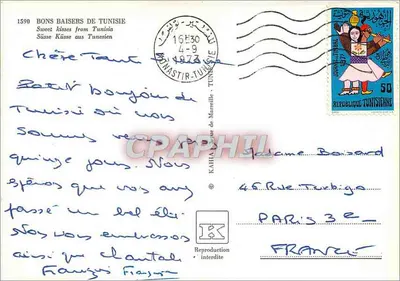 1590 BONS BAISERS DE TUNISIE
Sweet kisses from Tunisia
Süsse Küsse aus Tunesien
16H30
4-9
1973
MONASTIR-TUNISIE
Chère Tant
Petit bonjour de
Tunisie où nous
sommes venus
quinze jours. Nous
espérons que vous avez
passé un bel été.
Nous vous embrassons
ainsi que Chantal.
François
CPARAMA
Madame Boisard
46 Rue Turbigo
PARIS 3e
FRANCE
50
REPUBLIQUE TUNISIENNE
K
Reproduction
interdite